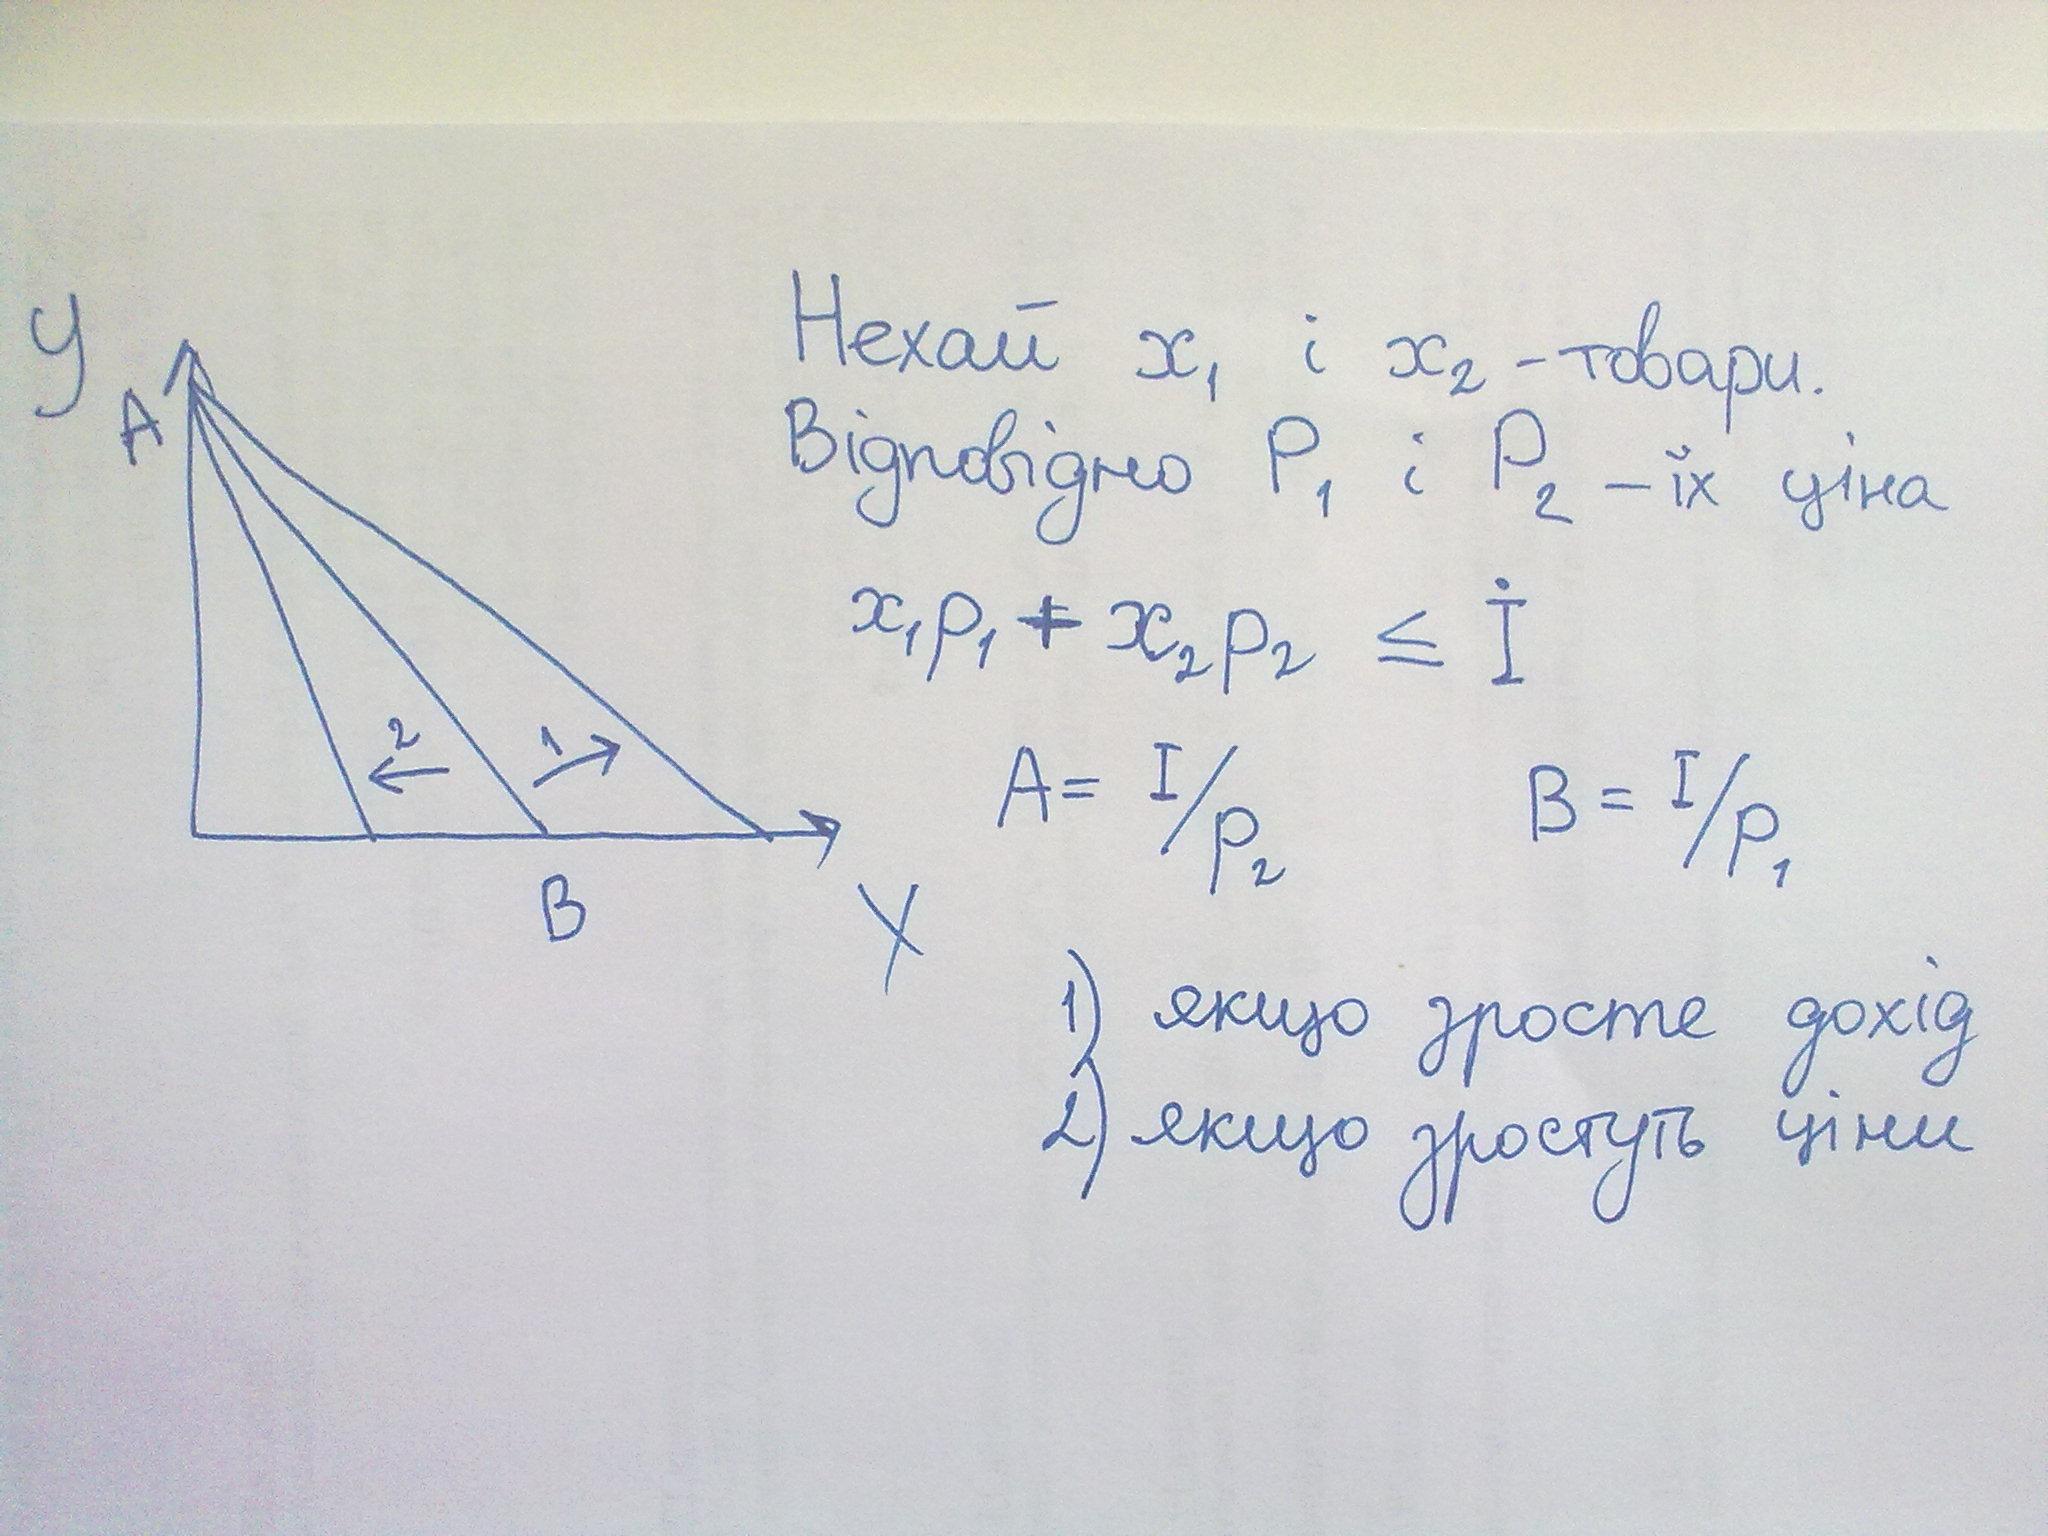 У
А
2
1
В
X
Нехай x₁ і x₂ - товари.
Відповідно P₁ і P₂ - їх ціна
x₁p₁ + x₂p₂ ≤ İ
A = I/p₂ B = I/p₁
1) якщо зросте дохід
2) якщо зростуть ціни